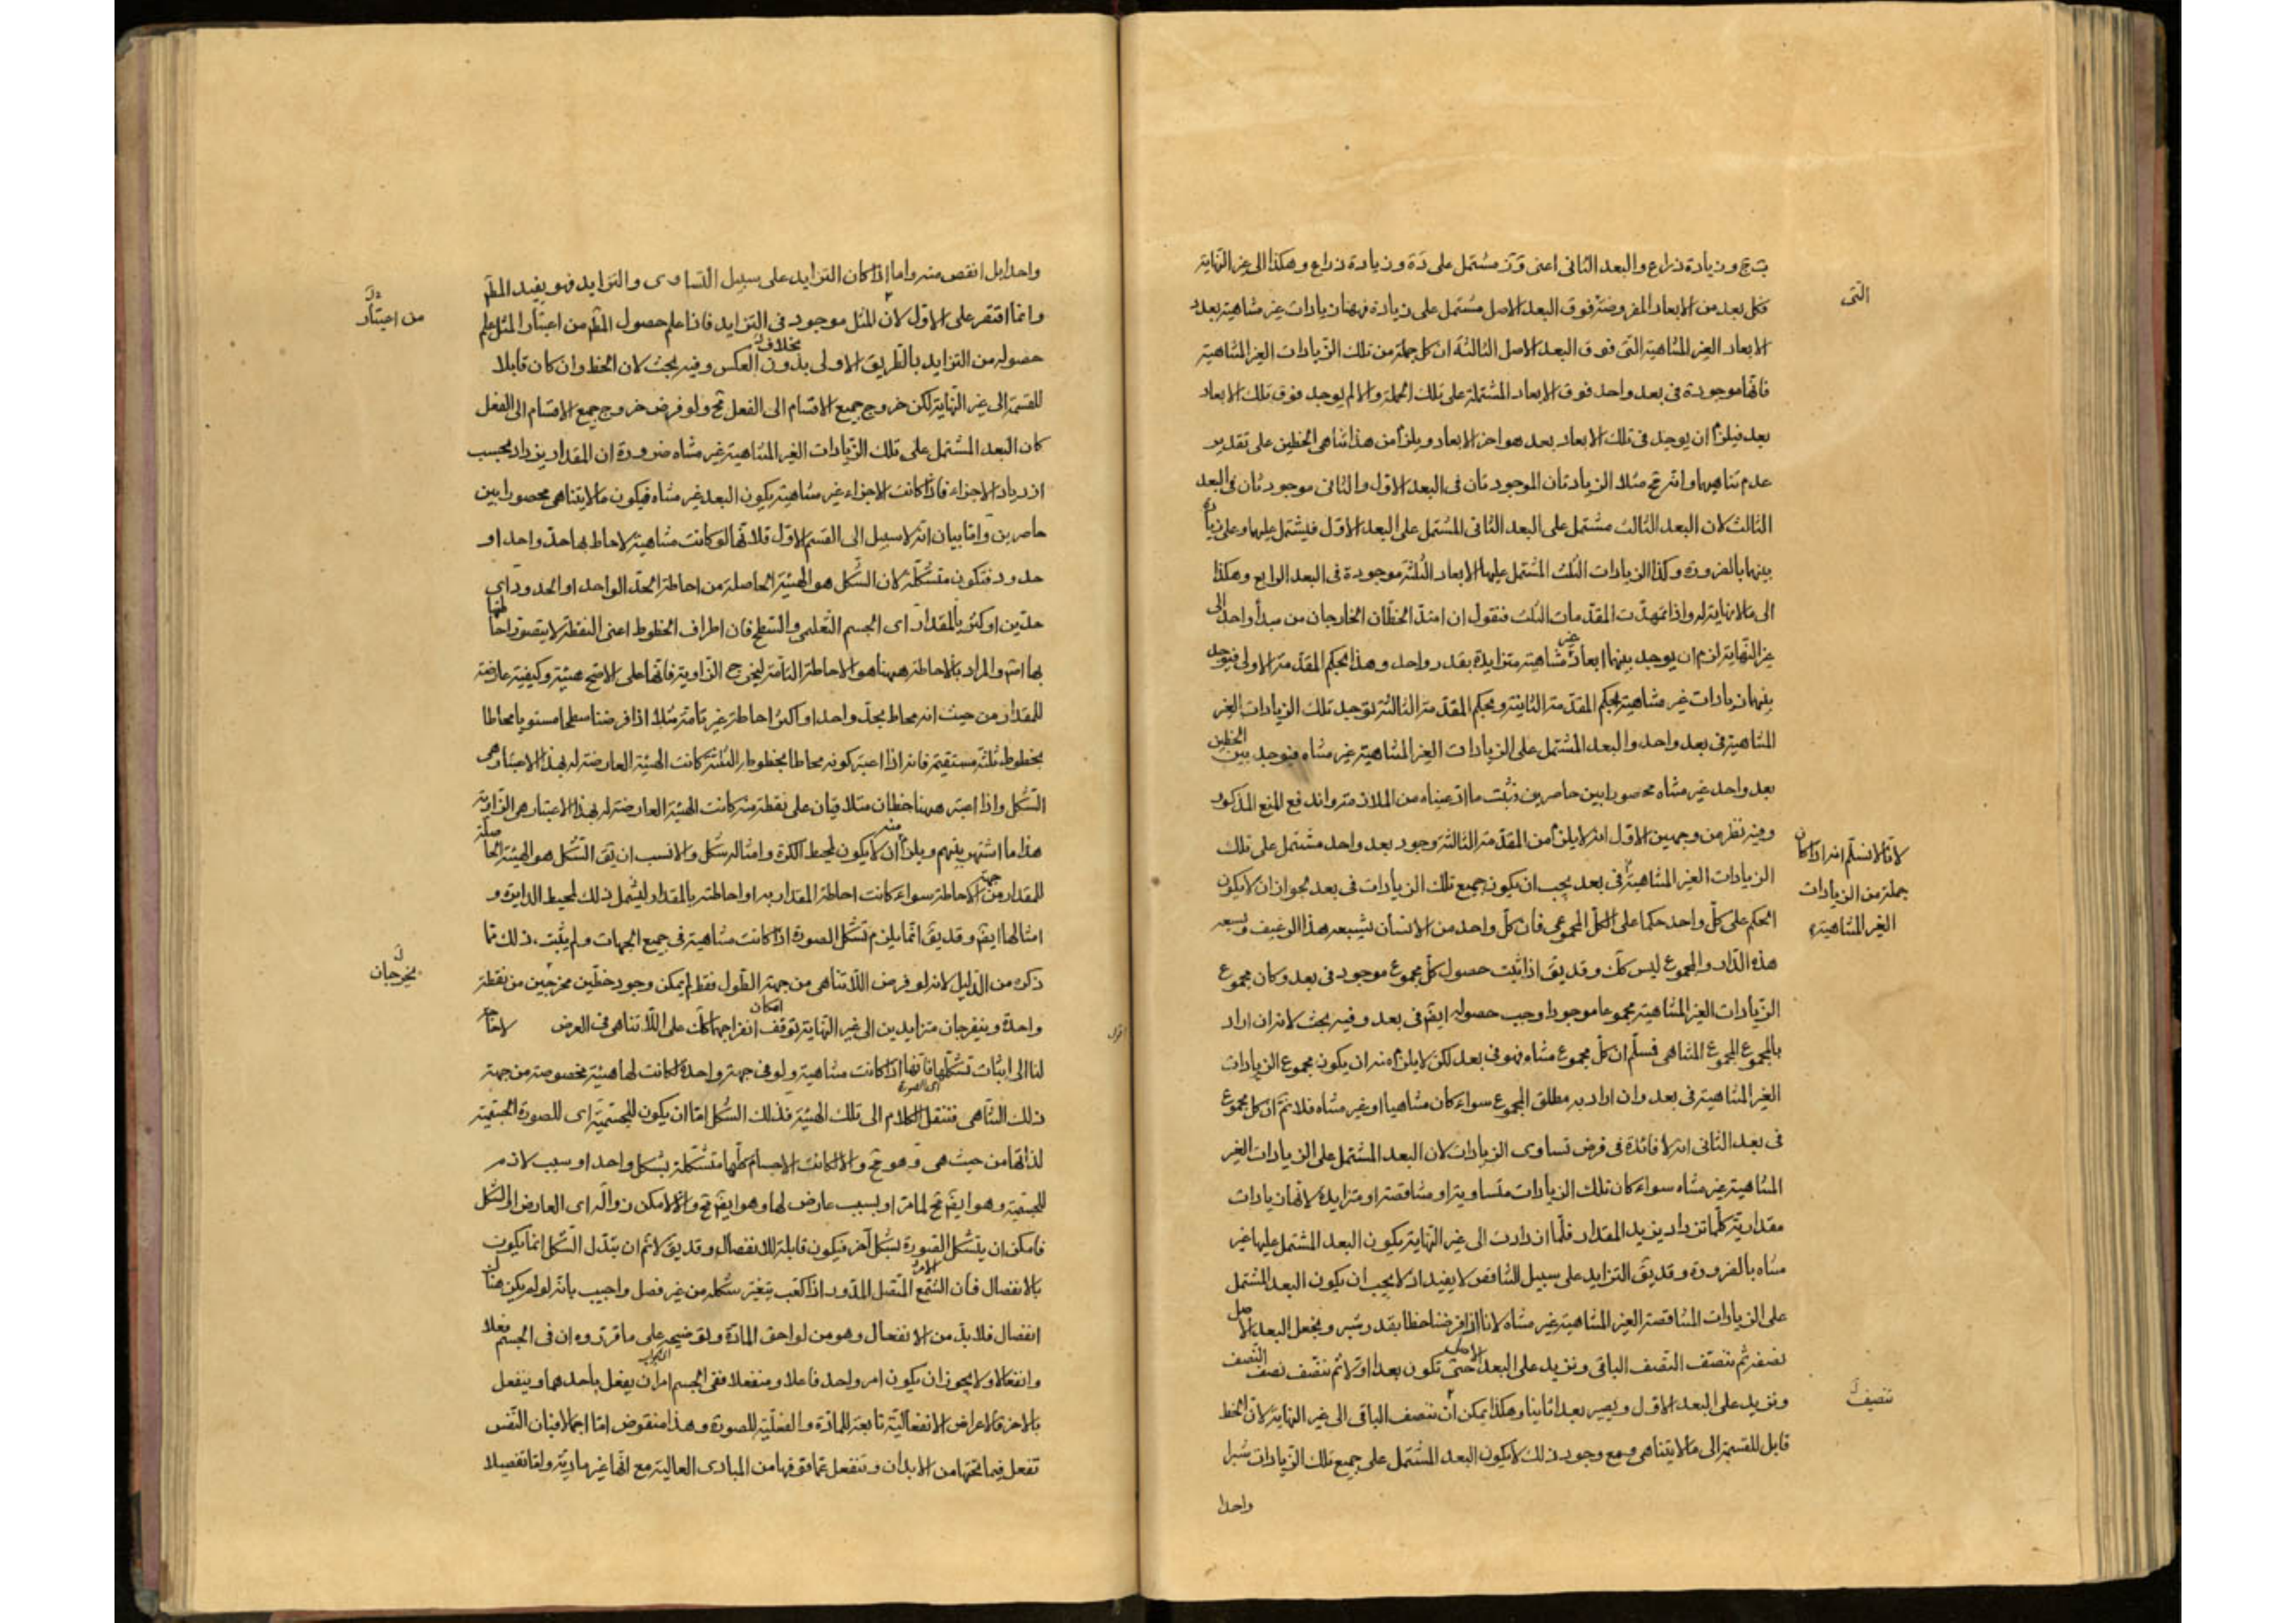 ب ج و زيادة ذراع والبعد الثانى اعنى و ز مشتمل على د ه و زيادة ذراع وهكذا الى غير النهاية
فكل بعد من الابعاد المفروضة فوق البعد الاصل مشتمل على زيادة فههنا زيادات غير متناهية بعدد
الابعاد الغير المتناهية التى فوق البعد الاصل الثالثة ان كل جملة من تلك الزيادات الغير المتناهية
فانها موجودة فى بعد واحد فوق الابعاد المشتملة على تلك الجملة والا لم يوجد فوق تلك الابعاد
بعد فيلزم ان يوجد فى تلك الابعاد بعد هو اخر الابعاد ويلزم من هذا تناهى الخطين على تقدير
عدم تناهيهما وانه مح مثلا الزيادتان الموجودتان فى البعد الاول والثانى موجودتان فى البعد
الثالث لان البعد الثالث مشتمل على البعد الثانى المشتمل على البعد الاول فيشتمل عليهما وعلى زيادتى
بينهما بالضرورة وكذا الزيادات الثلث المشتمل عليها الابعاد الثلثة موجودة فى البعد الرابع وهكذا
الى ما لا نهاية له واذا تمهدت المقدمات الثلث فنقول ان امتد الخطان الخارجان من مبدأ واحد الى
غير النهاية لزم ان يوجد بينهما ابعاد غير متناهية متزايدة بقدر واحد وهذا بحكم المقدمة الاولى فيوجد
بينهما زيادات غير متناهية بحكم المقدمة الثانية وبحكم المقدمة الثالثة توجد تلك الزيادات الغير
المتناهية فى بعد واحد والبعد المشتمل على الزيادات الغير المتناهية غير متناه فيوجد بين الخطين
بعد واحد غير متناه محصورا بين حاصرين فثبت ما ادعيناه من الملازمة واندفع المنع المذكور
وفيه نظر من وجهين الاول انه لا يلزم من المقدمة الثالثة وجود بعد واحد مشتمل على تلك
الزيادات الغير المتناهية فى بعد يجب ان يكون جميع تلك الزيادات فى بعد لجواز ان لا يكون
الحكم على كل واحد حكما على الكل المجموعى فان كل واحد من الانسان يشبعه هذا الرغيف ويسعه
هذه الدار والمجموع ليس كك وقد يق اذا ثبت حصول كل مجموع موجود فى بعد وكان مجموع
الزيادات الغير المتناهية مجموعا موجودا وجب حصوله ايضا فى بعد وفيه بحث لانه ان اراد
بالمجموع المجموع المتناهى فسلم ان كل مجموع متناه فهو فى بعد لكن لا يلزم منه ان يكون مجموع الزيادات
الغير المتناهية فى بعد وان اراد به مطلق المجموع سواء كان متناهيا او غير متناه فلا نم ان كل مجموع
فى بعد الثانى انه لا فائدة فى فرض تساوى الزيادات لان البعد المشتمل على الزيادات الغير
المتناهية غير متناه سواء كان تلك الزيادات متساوية او متناقصة او متزايدة لانها زيادات
مقدارية كلما تزداد يزيد المقدار فلما ازدادت الى غير النهاية يكون البعد المشتمل عليها غير
متناه بالضرورة وقد يق التزايد على سبيل التناقص لا يفيد اذ لا يجب ان يكون البعد المشتمل
على الزيادات المتناقصة الغير المتناهية غير متناه لانا اذا فرضنا خطا بقدر شبر ونجعل البعد الاصل
نصفه ثم ننصف النصف الباقى ونزيد على البعد الاصل حتى تكون بعدا اولا ثم ننصف نصف النصف
ونزيد على البعد الاول ويصير بعدا ثانيا وهكذا يمكن ان ننصف الباقى الى غير النهاية لان الخط
قابل للقسمة الى ما لا يتناهى ومع وجود ذلك لا يكون البعد المشتمل على جميع تلك الزيادات شبرا
واحدا
التى
لانا لا نسلم انه اذا كان
جملة من الزيادات
الغير المتناهية
تنصيف
واحدا بل انقص منه واما اذا كان التزايد على سبيل التساوى والتزايد فهو يفيد المط
وانما اقتصر على الاول لان المثل موجود فى التزايد فاذا علم حصول المط من اعتبار المثل علم
حصوله من التزايد بالطريق الاولى بدون العكس وفيه بحث لان الخط وان كان قابلا
بخلاف
للقسمة الى غير النهاية لكن خروج جميع الاقسام الى الفعل مح ولو فرض خروج جميع الاقسام الى الفعل
كان البعد المشتمل على تلك الزيادات الغير المتناهية غير متناه ضرورة ان المقدار يزداد بحسب
ازدياد الاجزاء فاذا كانت الاجزاء غير متناهية يكون البعد غير متناه فيكون ما لا يتناهى محصورا بين
حاصرين واما بيان انه لا سبيل الى القسم الاول فلانها لو كانت متناهية لاحاط بها حد واحد او
حدود فتكون متشكلة لان الشكل هو الهيئة الحاصلة من احاطة الحد الواحد او الحدود اى
حدين او اكثر بالمقدار اى الجسم التعليمى والسطح فان اطراف الخطوط اعنى النقطة لا يتصور احاطتها
بها اتم والمراد بالاحاطة ههنا هو الاحاطة التامة ليخرج الزاوية فانها على الاصح هيئة وكيفية عارضة
للمقدار من حيث انه محاط بحد واحد او اكثر احاطة غير تامة مثلا اذا فرضنا سطحا مستويا محاطا
بخطوط ثلثة مستقيمة فانه اذا اعتبر كونه محاطا بخطوط الثلثة كانت الهيئة العارضة له بهذا الاعتبار هى
الشكل واذا اعتبر ههنا خطان متلاقيان على نقطة منه كانت الهيئة العارضة له بهذا الاعتبار هى الزاوية
هذا ما اشتهر بينهم ويلزم منه ان لا يكون لمحيط الكرة وامثاله شكل والانسب ان يق الشكل هو الهيئة الحاصلة
للمقدار من جهة الاحاطة سواء كانت احاطة المقدار به او احاطته بالمقدار ليشمل ذلك لمحيط الدايرة و
امثالها ايضا وقد يق انما يلزم تشكل الصورة اذا كانت متناهية فى جميع الجهات ولم يثبت ذلك مما
ذكره من الدليل لانه لو فرض اللاتناهى من جهة الطول فقط لم يمكن وجود خطين مخرجين من نقطة
واحدة وينفرجان متزايدين الى غير النهاية لتوقف امكان انفراجهما كك على اللاتناهى فى العرض لا حاجة
لنا الى اثبات تشكلها فانها اذا كانت متناهية ولو فى جهة واحدة لكانت لها هيئة مخصوصة من جهة
اى الصورة
ذلك التناهى فننقل الكلام الى تلك الهيئة فذلك الشكل اما ان يكون للجسمية اى للصورة الجسمية
لذاتها من حيث هى هى وهو مح والا لكانت الاجسام كلها متشكلة بشكل واحد او بسبب لازم
للجسمية وهو ايضا مح لما مر او بسبب عارض لها وهو ايضا مح والا لامكن زواله اى العارض او الشكل
فامكن ان يتشكل الصورة بشكل آخر فيكون قابلة للانفصال وقد يق لا نم ان تبدل الشكل انما يكون
بالانفصال فان الشمع المتصل المدور اذا كعب يتغير شكله من غير فصل واجيب بانه لو لم يكن هناك
انفصال فلا بد من الانفعال وهو من لواحق المادة وتوضيحه على ما قرروه ان فى الجسم فعلا
وانفعالا ولا يجوز ان يكون امر واحد فاعلا ومنفعلا ففى الجسم امران يفعل باحدهما وينفعل
بالاخر فالاعراض الانفعالية تابعة للمادة والفعلية للصورة وهذا منقوض اما اجمالا فبان النفس
تفعل فيما تحتها من الابدان وتنفعل عما فوقها من المبادى العالية مع انها غير مادية واما تفصيلا
من اعتبار
يخرجان